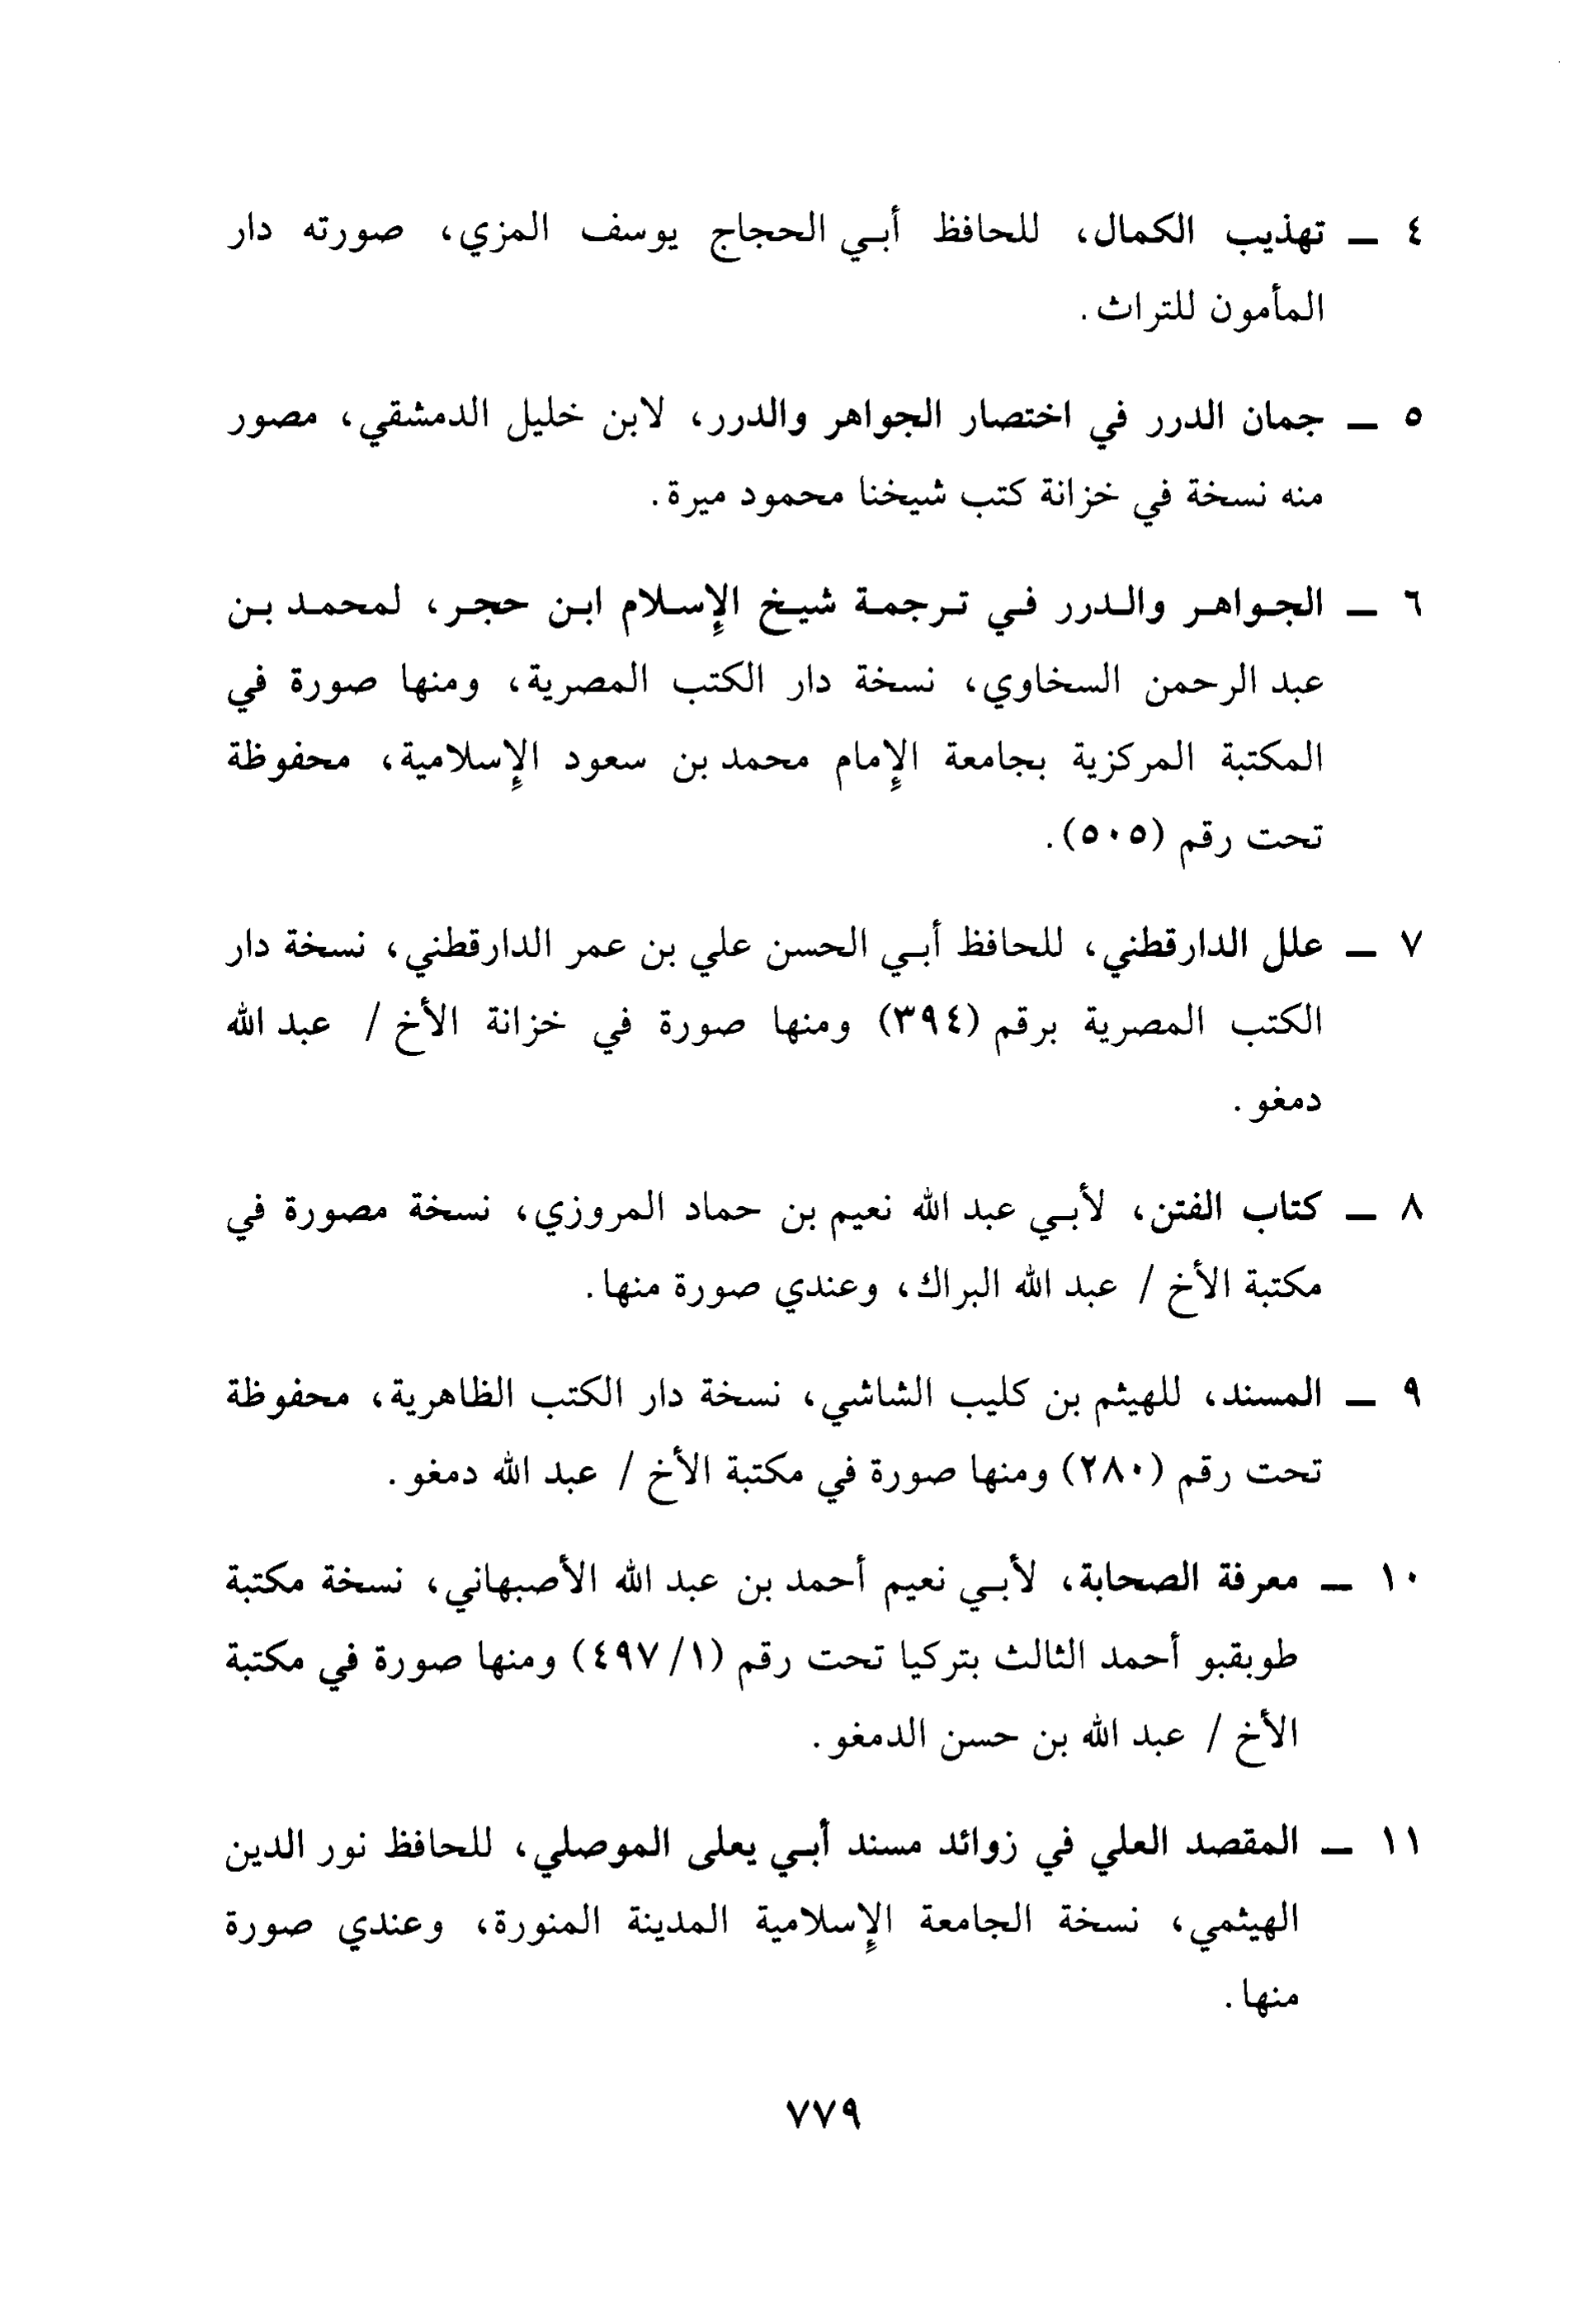 ٤ ــ تهذيب الكمال، للحافظ أبي الحجاج يوسف المزي، صورته دار
المأمون للتراث.
٥ ــ جمان الدرر في اختصار الجواهر والدرر، لابن خليل الدمشقي، مصور
منه نسخة في خزانة كتب شيخنا محمود ميرة.
٦ ــ الجواهر والدرر في ترجمة شيخ الإسلام ابن حجر، لمحمد بن
عبد الرحمن السخاوي، نسخة دار الكتب المصرية، ومنها صورة في
المكتبة المركزية بجامعة الإمام محمد بن سعود الإسلامية، محفوظة
تحت رقم (٥٠٥).
٧ ــ علل الدارقطني، للحافظ أبي الحسن علي بن عمر الدارقطني، نسخة دار
الكتب المصرية برقم (٣٩٤) ومنها صورة في خزانة الأخ / عبد الله
دمغو.
٨ ــ كتاب الفتن، لأبي عبد الله نعيم بن حماد المروزي، نسخة مصورة في
مكتبة الأخ / عبد الله البراك، وعندي صورة منها.
٩ ــ المسند، للهيثم بن كليب الشاشي، نسخة دار الكتب الظاهرية، محفوظة
تحت رقم (٢٨٠) ومنها صورة في مكتبة الأخ / عبد الله دمغو.
١٠ ــ معرفة الصحابة، لأبي نعيم أحمد بن عبد الله الأصبهاني، نسخة مكتبة
طوبقبو أحمد الثالث بتركيا تحت رقم (٤٩٧/١) ومنها صورة في مكتبة
الأخ / عبد الله بن حسن الدمغو.
١١ ــ المقصد العلي في زوائد مسند أبي يعلى الموصلي، للحافظ نور الدين
الهيثمي، نسخة الجامعة الإسلامية المدينة المنورة، وعندي صورة
منها.
٧٧٩